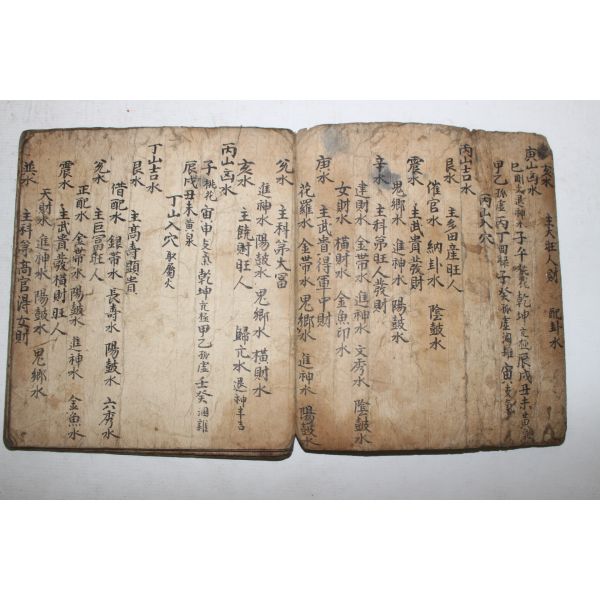 亥水
主大旺人財 配卦水
寅山凶水
巳 退神水子午桃花乾坤 辰戌丑未黃泉
甲乙孤虛丙丁 子癸孤虛 寅
丙山入穴
丙山吉水
艮水 主多田産旺人
催官水 納卦水 陰鼓水
震水 主武貴發財
鬼鄉水 進神水 陽鼓水
辛水 主科第旺人發財
建財水 金帶水 進神水 文秀水 陰鼓水
女財水 橫財水 金魚印水
庚水 主武貴得軍中財
花羅水 金帶水 鬼鄉水 進神水 陽鼓水
兊水 主科第大富
進神水 陽鼓水 鬼鄉水 橫財水
亥水 主饒財旺人 歸亢水退神半吉
丙山凶水
子桃花 寅申 乾坤 甲乙孤虛 壬癸
辰戌丑未黃泉
丁山入穴 取屬火
丁山吉水
艮水 主高壽顯貴
借配水 銀帶水 長壽水 陽鼓水 六秀水
兊水 主巨富旺人
正配水 金帶水 陽鼓水 進神水 金魚水
震水 主武貴發橫財旺人
天財水 進神水 陽鼓水 鬼鄉水
主科第高官得女財